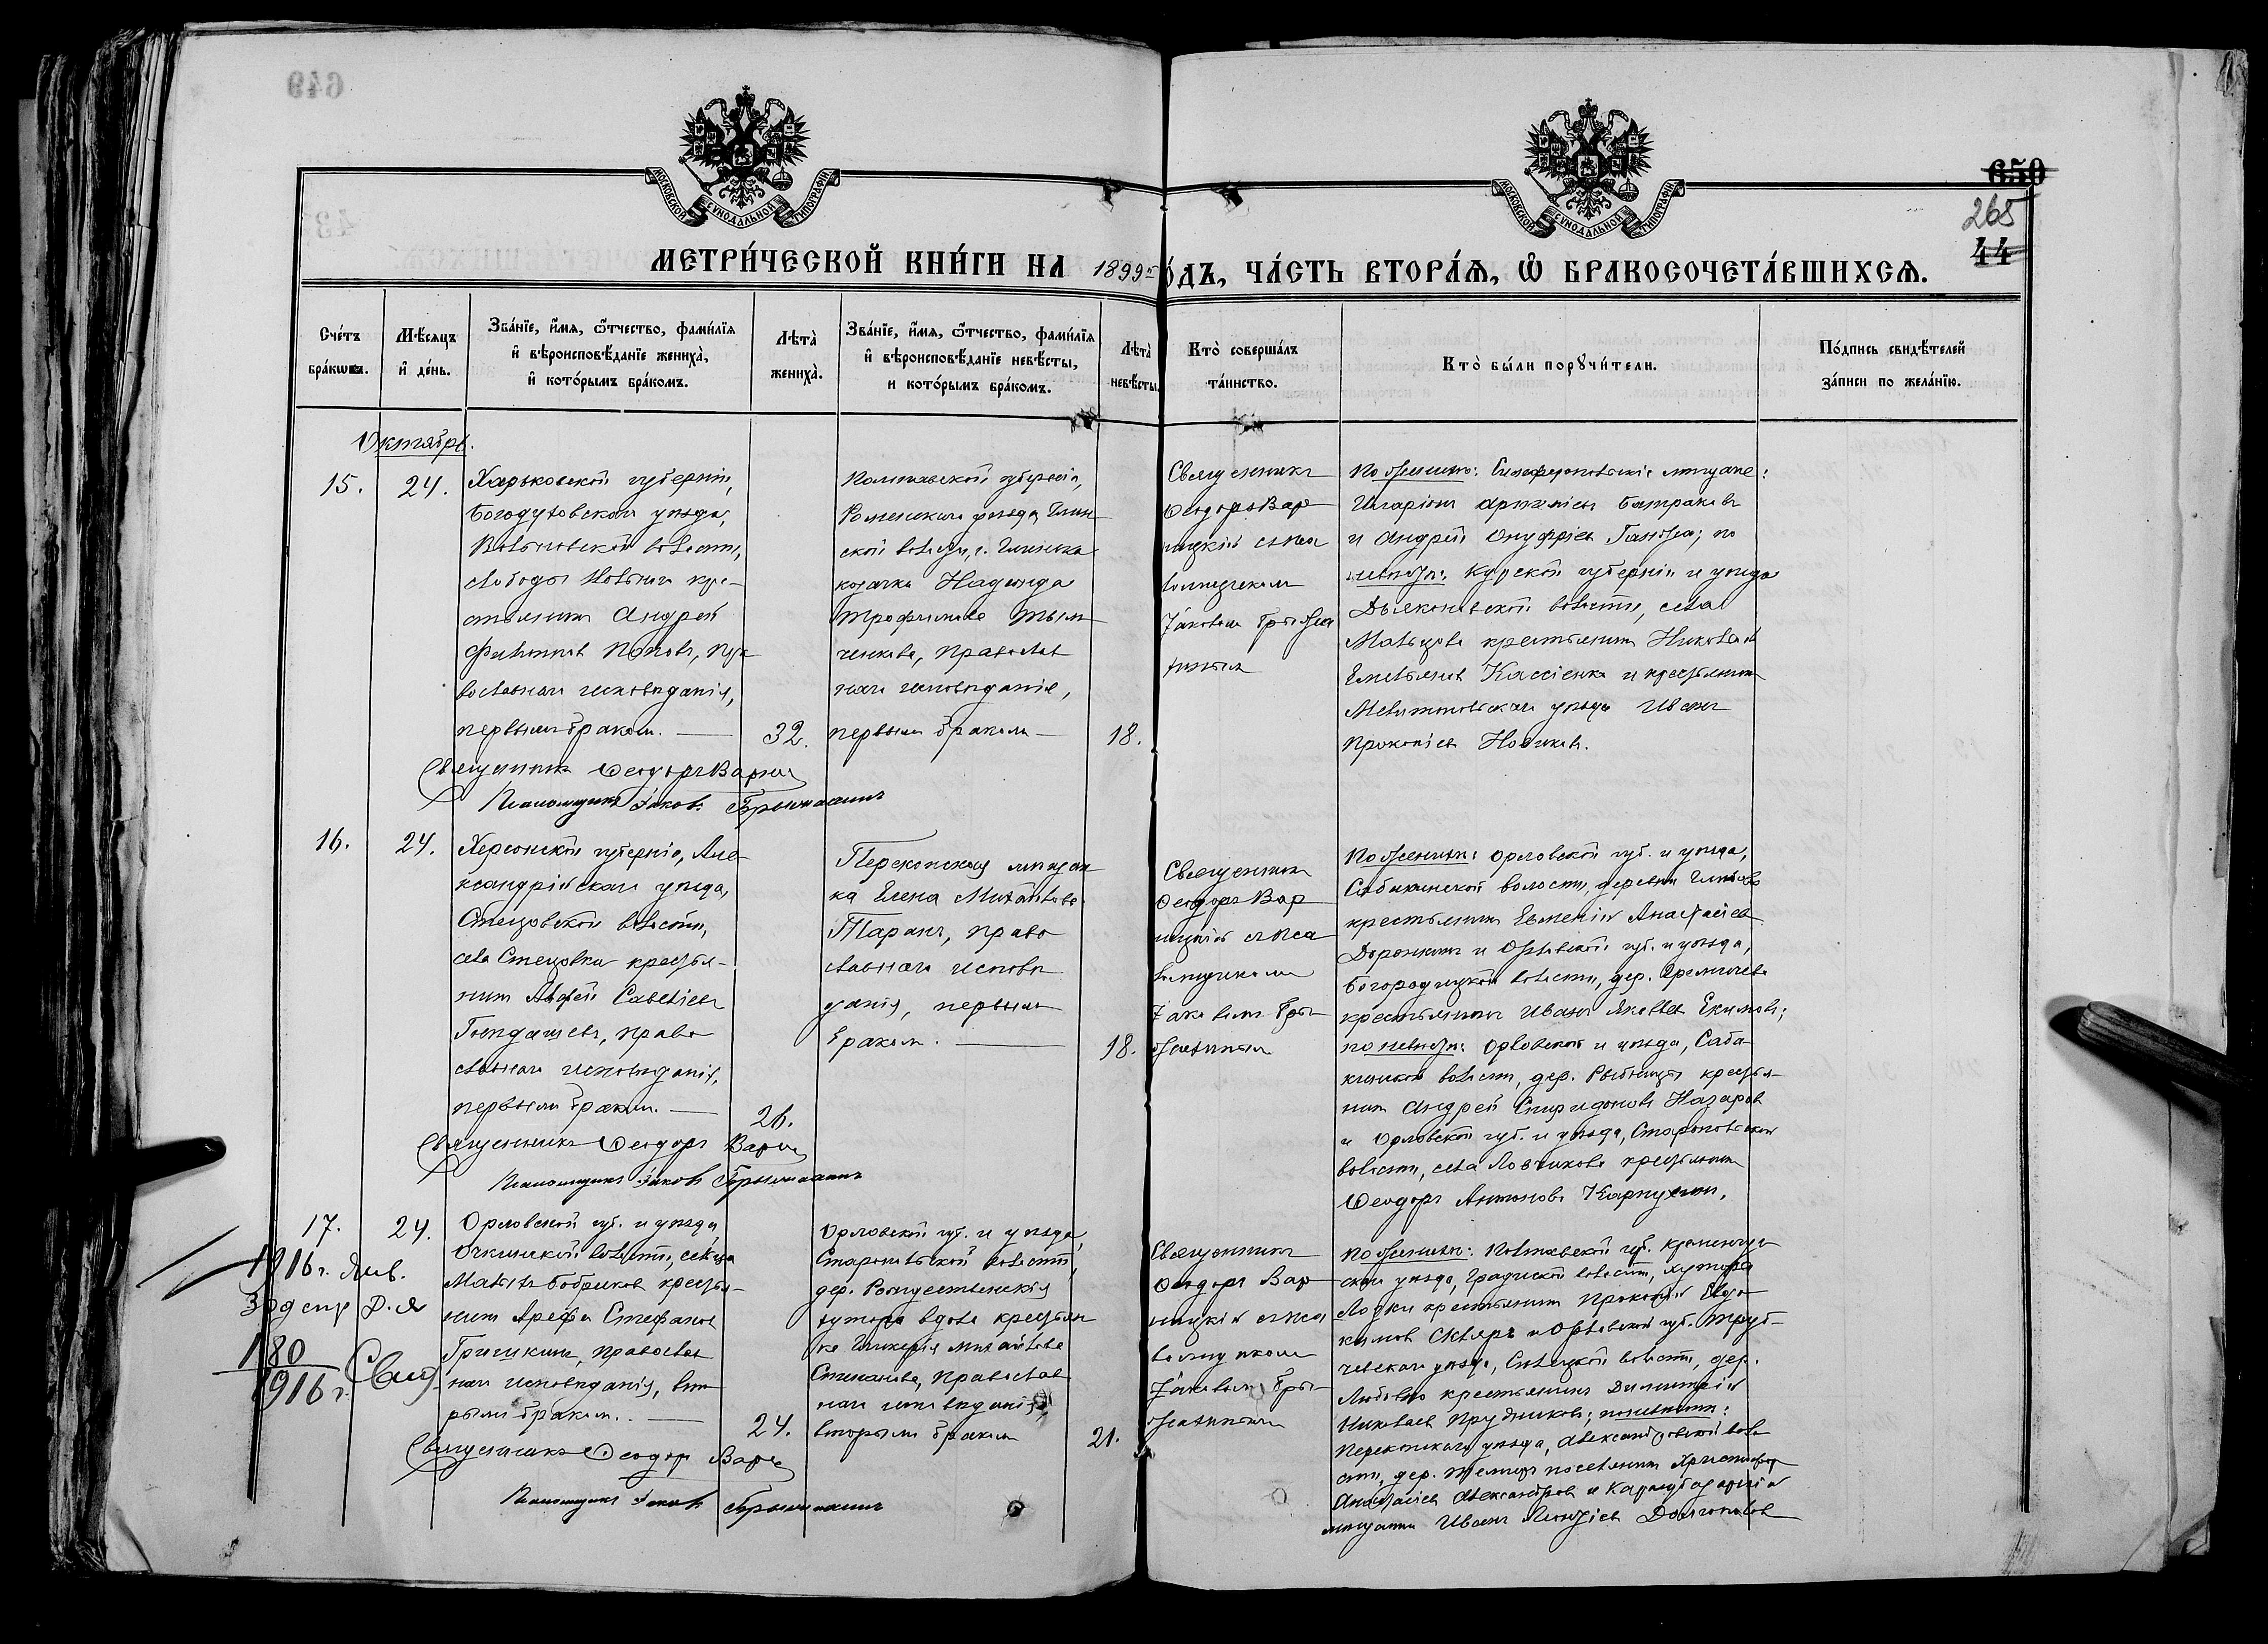 649
МОСКОВСКОЙ СѴНОДАЛЬНОЙ ТИПОГРАФІИ
МОСКОВСКОЙ СѴНОДАЛЬНОЙ ТИПОГРАФІИ
650
265
44
МЕТРИ́ЧЕСКОЙ КНИ́ГИ НА 1899 г
О́ДЪ, ЧА́СТЬ ВТОРА́Я, Ѽ БРАКОСОЧЕТА́ВШИХСЯ.
Сче́тъ бра́кѡвъ.
Мѣ́сяцъ и҆ де́нь.
Зва́нїе, и҆́мя, ѻ҆́тчество, фами́лїя и҆ вѣроисповѣ́данїе жениха̀, и҆ кото́рымъ бра́комъ.
Лѣта̀ жениха̀.
Зва́нїе, и҆́мя, ѻ҆́тчество, фами́лїя и҆ вѣроисповѣ́данїе невѣ́сты, и кото́рымъ бра́комъ.
Лѣта̀ невѣ́сты.
Кто̀ соверша́лъ та́инство.
Кто̀ бы́ли порꙋчи́тели.
По́дпись свидѣ́телей за́писи по жела́нїю.
Октябрь.
15.
24.
Харьковской губерніи,
Богодуховскаго уѣзда,
волости,
слободы кре-
стьянинъ Андрей
Филиппов Поповъ, пра
вославнаго исповѣданія,
первымъ бракомъ.
32.
Полтавской губерніи,
Роменскаго уѣзда, Глин
ской волости, м. Глинска
козачка Надежда
Трофимова
православ
наго исповѣданія,
первымъ бракомъ
18.
Священникъ
Ѳеодоръ Вар
ницкій съ пса
ломщикомъ
Іаковомъ Брыжа
тымъ
По женихѣ: Симферопольскіе мѣщане:
Иларіонъ Артеміевъ Батраковъ
и Андрей Онуфріевъ по
невѣстѣ: Курской губерніи и уѣзда
Дьяконовской волости, села
крестьянинъ Николай
Емельяновъ и крестьянинъ
Мелитопольскаго уѣзда Иванъ
Прокопіевъ Новиковъ.
Священникъ Ѳеодоръ Варни
Псаломщикъ Іаковъ
16.
24.
Херсонской губерніи, Але-
ксандрійскаго уѣзда,
Стецовской волости,
села Стецовки крестья-
нинъ Савеліевъ
право
славнаго исповѣданія,
первымъ бракомъ.
26.
Перекопская мѣщан
ка Елена Михайлова
Таранъ, право
славнаго исповѣ
данія, первымъ
бракомъ.
18.
Священникъ
Ѳеодоръ Вар
ницкій съ пса
ломщикомъ
Іаковомъ Бры
жатымъ
По женихѣ: Орловской губ. и уѣзда,
Сабакинской волости, деревни
крестьянинъ Евменій Анастасіевъ
Доронкинъ и Орловской губ. и уѣзда,
Богородицкой волости, дер.
крестьянинъ Иванъ Яковлевъ Екимовъ;
по невѣстѣ: Орловской и уѣзда, Саба
кинской волости, дер. Рыбницы крестья-
нинъ Андрей Спиридоновъ Назаровъ
и Орловской губ. и уѣзда,
волости, села Ловчикова крестьянинъ
Ѳеодоръ Антоновъ Карпухинъ,
Священникъ Ѳеодоръ Варни
Псаломщикъ Іаковъ
17.
24.
1916 г. Янв.
180
1916 г.
Орловской губ. и уѣзда,
волости, сельца
крестья-
нинъ Арефа Стефановъ
Гришкинъ, православ
наго исповѣданія, вто
рымъ бракомъ.
24.
Орловской губ. и уѣзда,
волости,
дер. Рождественскія
хутора вдова крестьян
ка Гликерія Михайлова
православ
наго исповѣданія,
вторымъ бракомъ
21.
Священникъ
Ѳеодоръ Вар
ницкій съ пса
ломщикомъ
Іаковомъ Бры
жатымъ
По женихѣ: Полтавской губ. Кременчуг
скаго уѣзда, Градижской волости, хутора
крестьянинъ Прокопій Евдо
кимовъ и Орловской губ. Труб-
чевскаго уѣзда, волости, дер.
крестьянинъ Димитрій
Николаевъ Прудниковъ; по невѣстѣ:
Перекопскаго уѣзда, Александровской воло
сти, дер. поселянинъ Христофоръ
Анастасіевъ Александровъ и Карасубазарскій
мѣщанинъ Иванъ Долгополовъ
Священникъ Ѳеодоръ Варн
Псаломщикъ Іаковъ